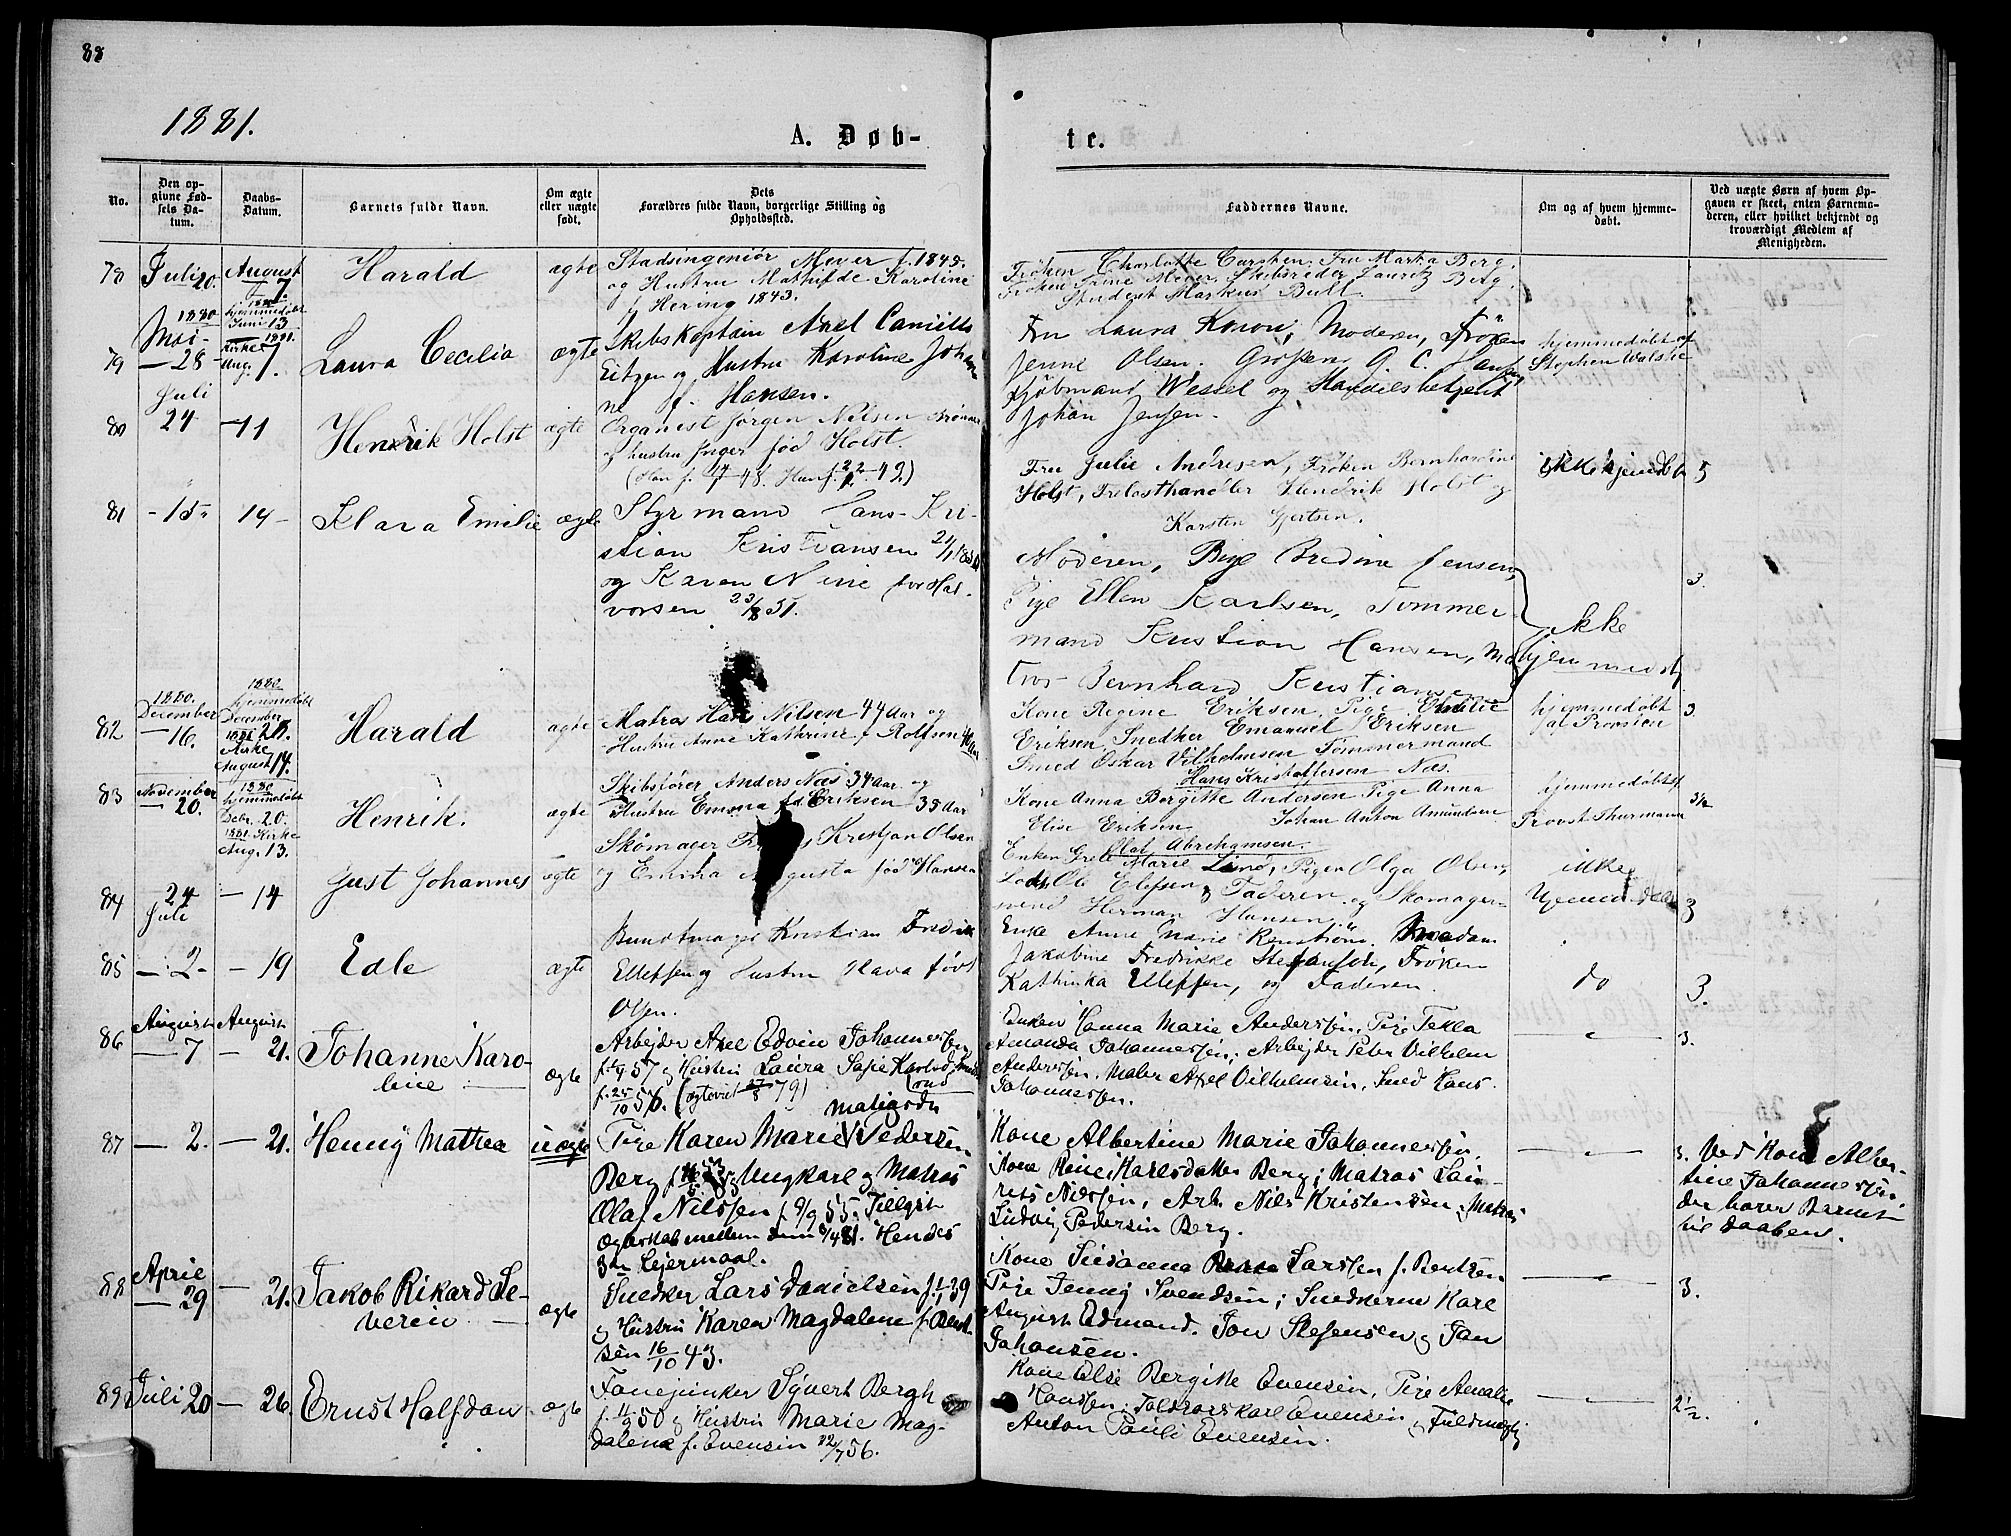 88
1881.
A. Døb-
te.
No.
Den op-
givne Fød-
sels Da-
tum.
Daabs-
Datum.
Barnets fulde Navn.
Om ægte
eller uægte
født.
Dets
Forældres fulde Navn, borgerlige Stilling og
Opholdssted.
Faddernes Navne.
Om og af hvem hjemme-
døbt.
Ved uægte Børn af hvem Op-
gaven er skeet, enten Barnemo-
deren, eller hvilket bekjendt og
troværdigt Medlem af
Menigheden.
78
Juli 20.
August
7
Harald
ægte
Stadsingeniör Meyer f. 1842.
og Hustru Mathilde Karoline
f. Hering 1843.
Fröken Charlotte Carsten. Fru Martha Berg.
Fröken Trine Meyer, Skibsreder Lauretz Berg.
Student Markus Bull.
79
1880
Mai
— 28 —
1880
hjemmedøbt
Juni 13
1881.
Kirke
Aug. 7.
Laura Cecilia
ægte
Skibskaptain Axel Camillo
Eitzen og Hustru Karoline Johan
ne f. Hansen.
Fru Laura Knon, Moderen, Fröken
Jenne Olsen. Gross. G. C. Hansen
Kjøbmand Wessel og Handelsbetjent
Johan Jensen.
hjemmedøbt af
Stephen Walshe
80
Juli
24
— 11
Hendrik Holst
ægte
Organist Jörgen Nilsen
og hustru Inger fød Holst.
Fru Julie Andresen, Fröken Bernhardine
Holst, Trelasthandler Hendrik Holst og
Karsten Gjertsen.
ikke hjemdbt
5
81
- 15 -
14 -
Klara Emilie
ægte
Styrmand Hans Kri-
stian Kristiansen
og Karen Nine for Hal-
vorsen 23/8 51.
Moderen, Pige Bredine Jensen,
Pige Ellen Karlsen, Tømmer-
mand Kristian Hansen, Ma
tros Bernhard Kristiansen
ikke
hjemmedbt
3.
82
1880.
December
— 16.
1880
hjemmedøbt
December
28.
1881
Kirke
August 14.
Harald
ægte
Matros Hans Nilsen 44 Aar og
Hustru Anne Kathrine f. Rolfsen 40 Aar
Kone Regine Eriksen, Pige Emilie
Eriksen, Snedker Emanuel Eriksen
Smed Oskar Vilhelmsen Tømmermand
Hans Kristoffersen Næs.
hjemmedøbt
af Provsten
3.
83
November
— 20.
1880
hjemmedøbt
Debr. 20.
1881. Kirke
Aug. 13.
Henrik.
ægte
Skibsfører Anders Næs 34 Aar og
Hustru Emma fd Eriksen 35 Aar
Kone Anna Bergitte Andersen Pige Anna
Elise Eriksen Johan Anton Amundsen
Olaf Abrahamsen.
hjemmedøbt af
Provst Thurmann
3½
84
24
Juli
— 14
Just Johannes
ægte
Skomager Kristjan Olsen
og Emma Augusta fød Hansen
Enken Grete Marie Lind, Pigen Olga Olsen,
Lods Ole Elefsen, Faderen og Skomager-
svend Herman Hansen
ikke
hjemmedøbt
3
85
— 2 —
— 19
Edle
ægte
Bundtmager Kristian Fredrik
Ellefsen og Hustru Hava født
Olsen.
Enke Anne Marie Renström. Madam
Jakobine Fredrikke Stefansen, Fröken
Kathinka Ellefsen, og Faderen.
do
3.
86
August
— 7
August
— 21.
Johanne Karo-
line —
ægte
Arbejder Axel Edvin Johannessen
f. 57 og Hustru Laura Sofie Karlsd.
f. 25/10 56. (ægteviet 27/8 79)
Enken Hanna Marie Anderssen, Pige Tekla
Amanda Johannessen, Arbejder Peter Vilhelm
Anderssen, Maler Axel Vilhelmsen, Smed Hans
Johannessen.
3.
87
— 2.
— 21.
Henny Mathea
uægte
Pige Karen Marie Pedersen
Berg og Ungkarl og Matros
Olaf Nilssen f. 9/9 55. Tillyst
Ægteskab mellem dem 8/4 81. Hendes
3die Lejermaal.
Kone Albertine Marie Johannessen,
Kone Karlsdatter Berg; Matros Lau-
rits Nilssen, Arb. Nils Kristensen, Matros
Ludvig Pedersen Berg.
3.
Ved Kone Alber-
tine Johannessen
der bærer Barnet
til daaben.
88
April
— 29
— 21.
Jakob Rikard Se-
verin —
ægte
Snedker Lars Danielsen f. 39
og Hustru Karen Magdalene f. Bent-
sen 16/10 43.
Kone Susanna Larssen f. Bentsen
Pige Jenny Svendsen; Snedkerne Karl
August Edmand. Jon Stefensen og Jan
Johansen.
3.
89
Juli 20
— 26.
Ernst Halfdan
ægte
Fanejunker Syvert Bergh
f. 11/9 50 og Hustru Marie Mag-
dalena f. Evensen 56.
Kone Else Bergitte Evensen, Pige Amalie
Hanssen; Toldroerskarl Evensen og Fuldmægtig
Anton Pauli Evensen.
2½.